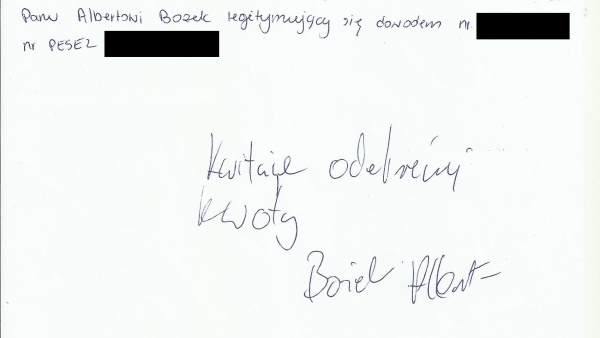 Panu Albertowi Bosek legitymujący się dowodem nr.
nr PESEL
Kwituje odebranej
kwoty
Bosek Albert